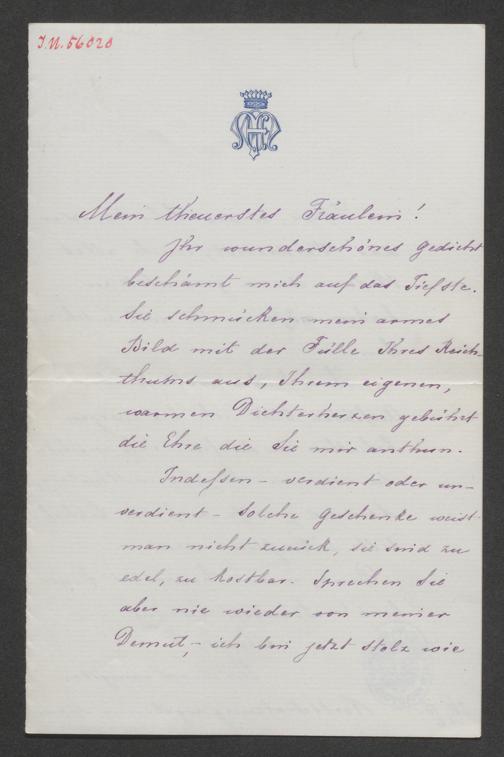 J.N. 56020
Mein theuerstes Fräulein!
Ihr wunderschönes Gedicht
beschämt mich auf das Tiefste.
Sie schmücken mein armes
Bild mit der Fülle Ihres Reich-
thums aus, Ihrem eigenen,
warmen Dichterherzen gebührt
die Ehre die Sie mir anthun.
Indessen – verdient oder un-
verdient – solche Geschenke weist
man nicht zurück, sie sind zu
edel, zu kostbar. Sprechen Sie
aber nie wieder von meiner
Demut, – ich bin jetzt stolz wie